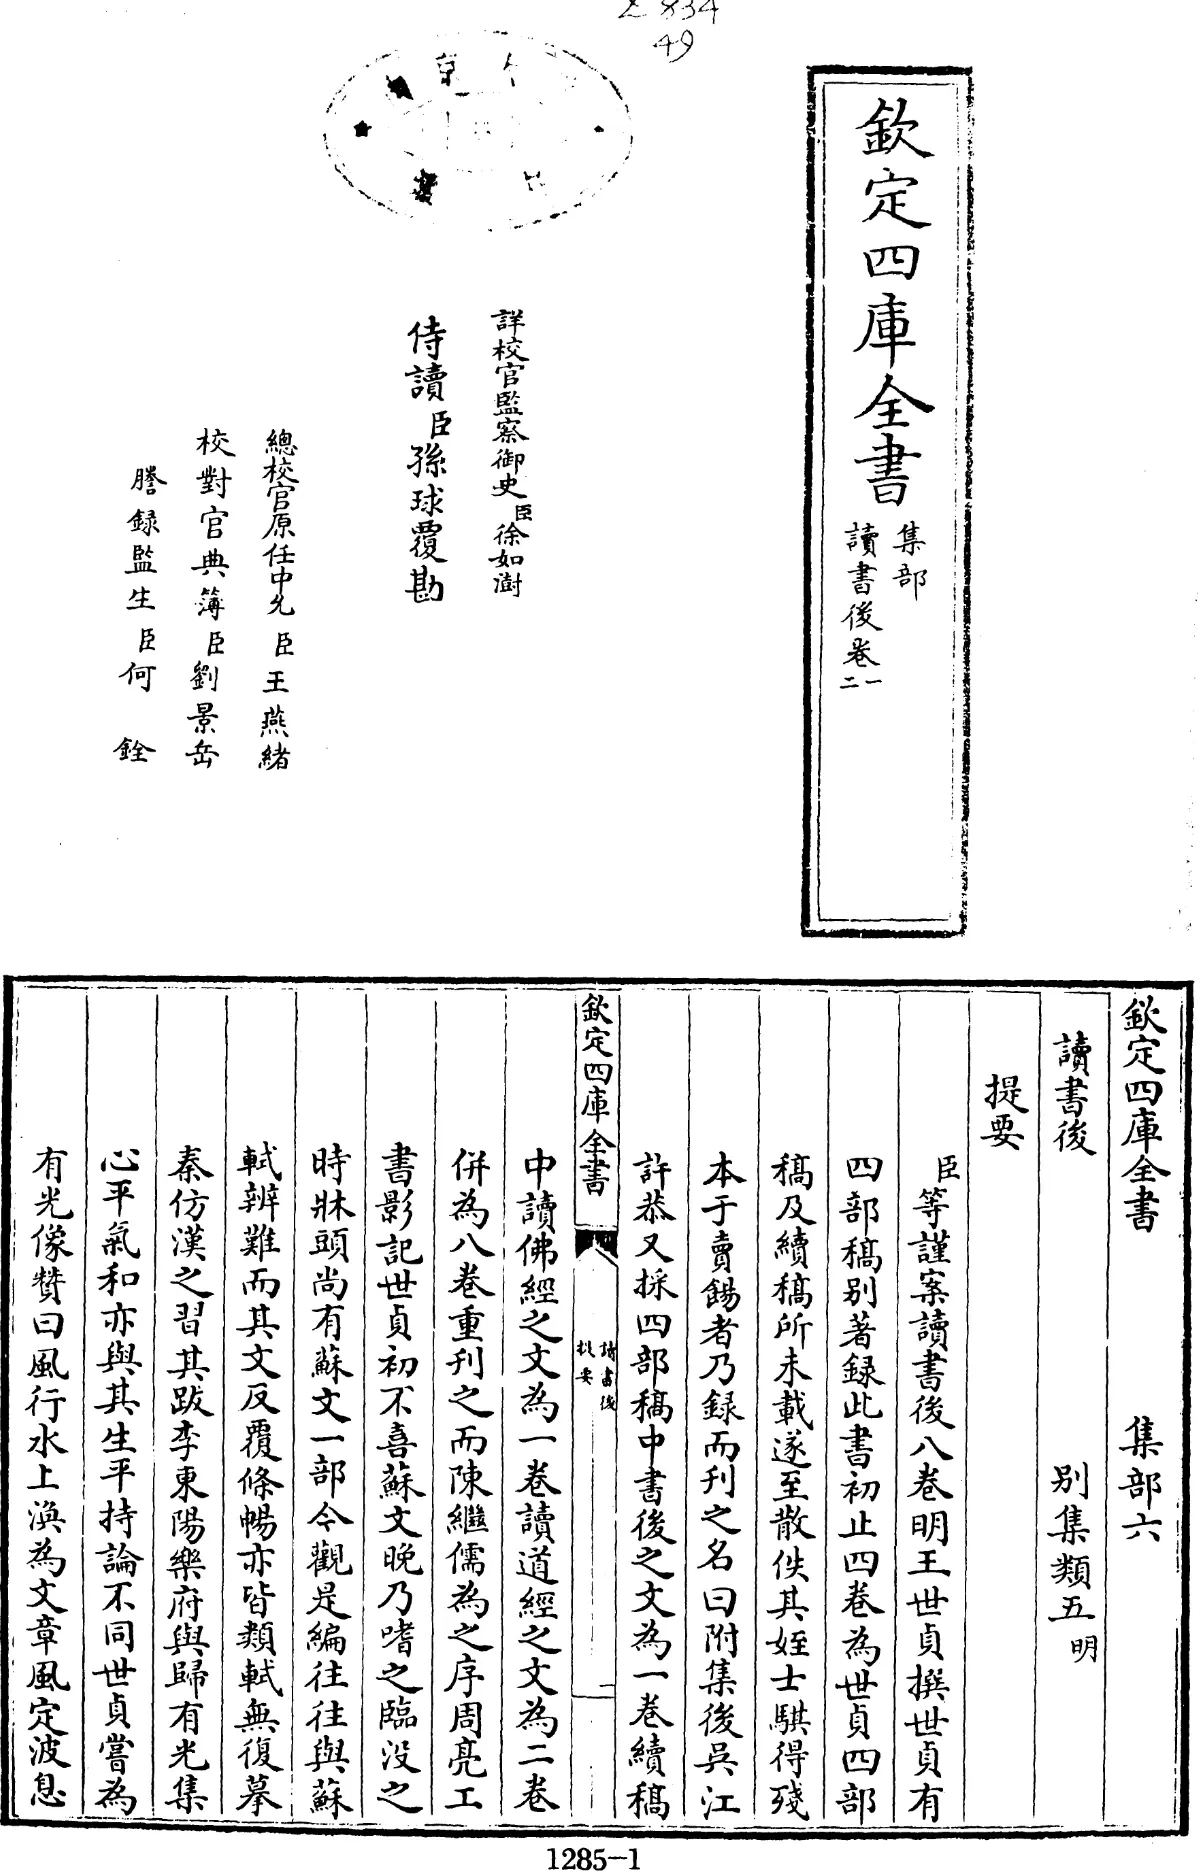 49
欽定四庫全書
集部
讀書後卷一
二
詳校官監察御史臣徐如澍
侍讀臣孫球覆勘
總校官原任中允臣王燕緒
校對官典簿臣劉景岳
謄錄監生臣何銓
欽定四庫全書　集部六
讀書後　別集類五明
提要
臣等謹案讀書後八卷明王世貞撰世貞有
四部稿別著錄此書初止四卷為世貞四部
稿及續稿所未載遂至散佚其姪士騏得殘
本于賣餳者乃錄而刊之名曰附集後吳江
許恭又採四部稿中書後之文為一卷續稿
欽定四庫全書
讀書後
提要
一
中讀佛經之文為一卷讀道經之文為二卷
併為八卷重刊之而陳繼儒為之序周亮工
書影記世貞初不喜蘇文晚乃嗜之臨沒之
時牀頭尚有蘇文一部今觀是編往往與蘇
軾辨難而其文反覆條暢亦皆類軾無復摹
秦仿漢之習其跋李東陽樂府與歸有光集
心平氣和亦與其生平持論不同世貞嘗為
有光像贊曰風行水上渙為文章風定波息
1285-1